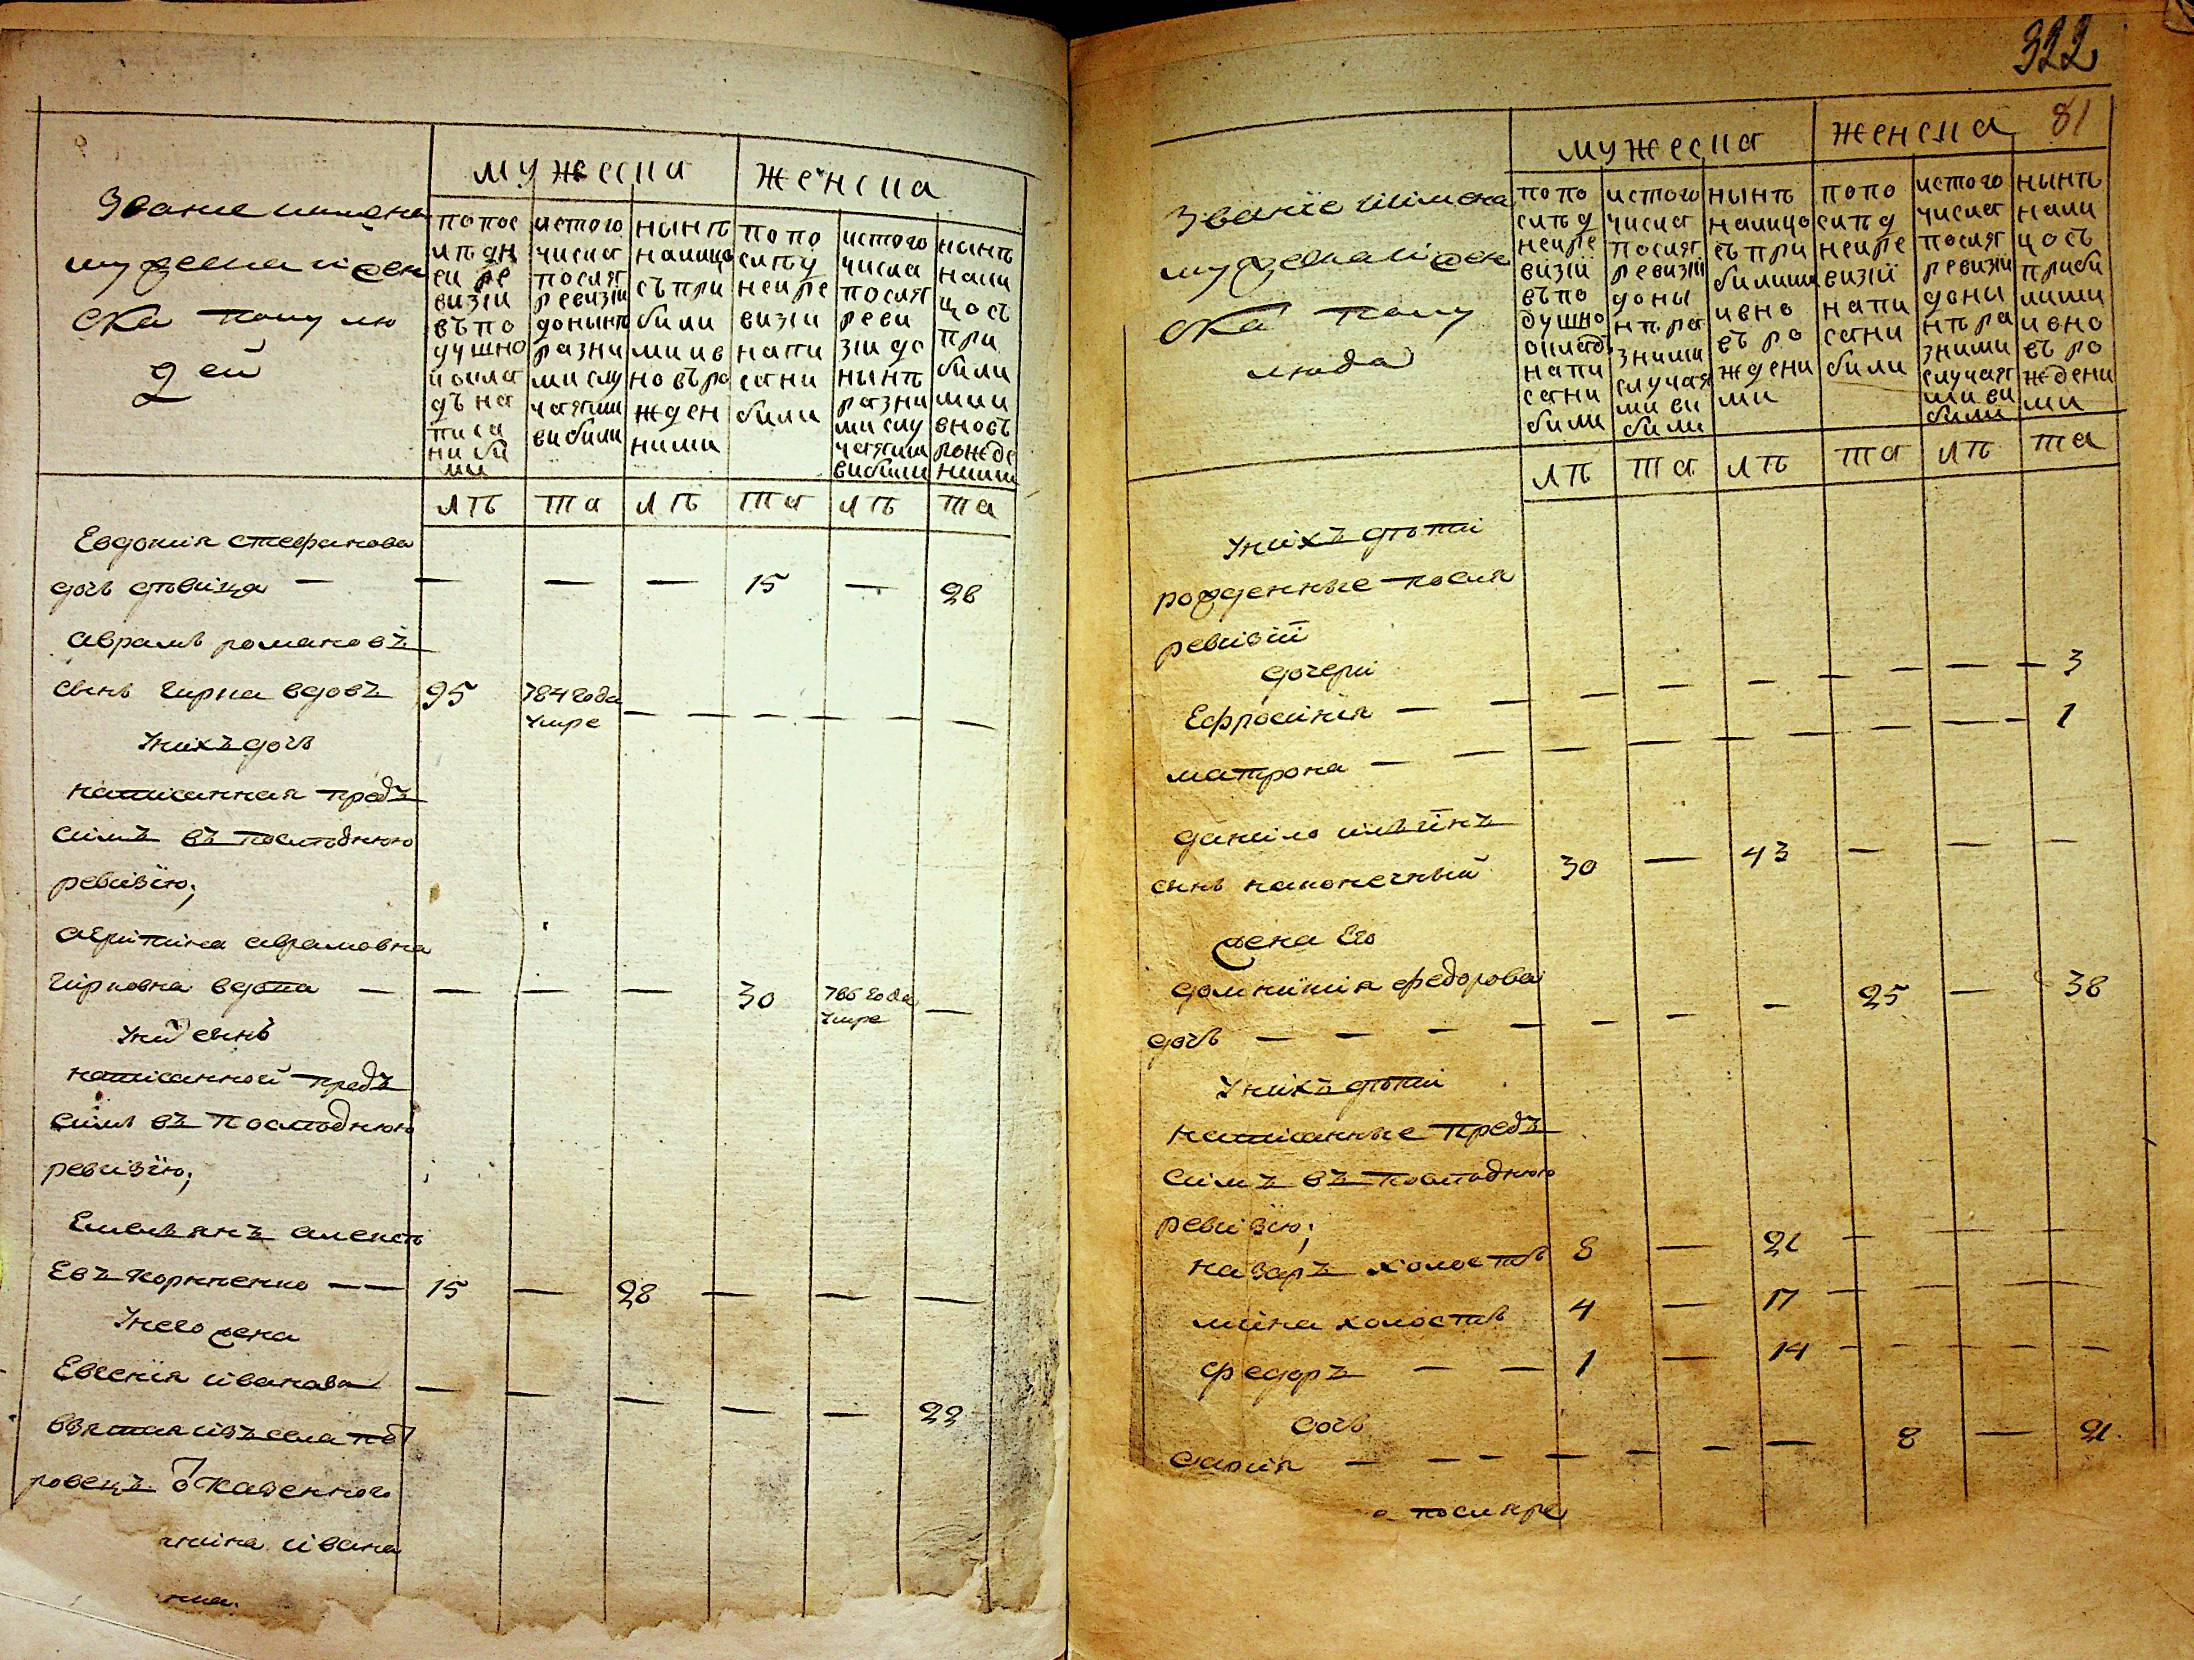 мужеска
женска
Звание имена
мужеска и жен
ска полу лю
дей
по пос
лѣдн
еи ре
визіи
въ по
душно
й окла
дъ на
писа
ни би
ли
из того
числа
послѣ
ревизіи
до нынѣ
разни
ми слу
чаями
вибили
нынѣ
налицо
съ при
били
ми и в
новъ ро
жден
ними
по по
слѣд
ней ре
визіи
напи
сани
били
из того
числа
послѣ
реви
зіи до
нынѣ
разни
ми слу
чаями
вибили
нынѣ
нали
цо съ
при
били
ми и
вновъ
рожде
ними
лѣ та лѣ та лѣ та
Евдокия стефанова
дочь дѣвица — — — — 15 — 28
аврамъ романовъ
сынъ чирка вдовъ 95 784 года
умре — — — — —
У них дочь
написанная предъ
симъ въ последнюю
ревизїю;
агрипина аврамовна
чирковна вдова — — — — 30 786 года
умре —
У ней сынъ
написанной предъ
симъ въ последнюю
ревизїю;
Емельянъ алексѣ
евъ корниенко — — 15 — 28 — — —
У него жена
Евгения иванова — — — — — 22
взятая изъ села пет
ровецъ от казенного
ина ивана
322
81
мужеска
женска
Званїе и имена
мужеска и жен
ска полу
люда
по по
слѣд
ней ре
визіи
въ по
душно
оклад
напи
сани
били
из того
числа
послѣ
ревизіи
до ны
нѣ ра
зними
случая
ми ви
били
нынѣ
налицо
съ при
билими
и вно
въ ро
ждени
ми
по по
слѣд
ней ре
визіи
напи
сани
били
из того
числа
послѣ
ревизіи
до ны
нѣ ра
зними
случая
ми ви
били
нынѣ
нали
цо съ
приби
лими
и вно
въ ро
ждени
ми
лѣ та лѣ та лѣ та
У нихъ дѣти
рожденные после
ревизїй
дочери
Ефросиния — — — — — — — — 3
матрона — — — — — — — — 1
данило ильинъ
сынъ наконечный 30 — 43 — — —
жена Его
домникия федорова
дочь — — — — — — — 25 — 38
У нихъ дѣти
написанные предъ
симъ въ последнюю
ревизїю;
назаръ холостъ 8 — 21 — — —
мина холостъ 4 — 17 — — —
федоръ — — 1 — 14 — — — —
дочь
— — — — — — — 8 — 21
после ре